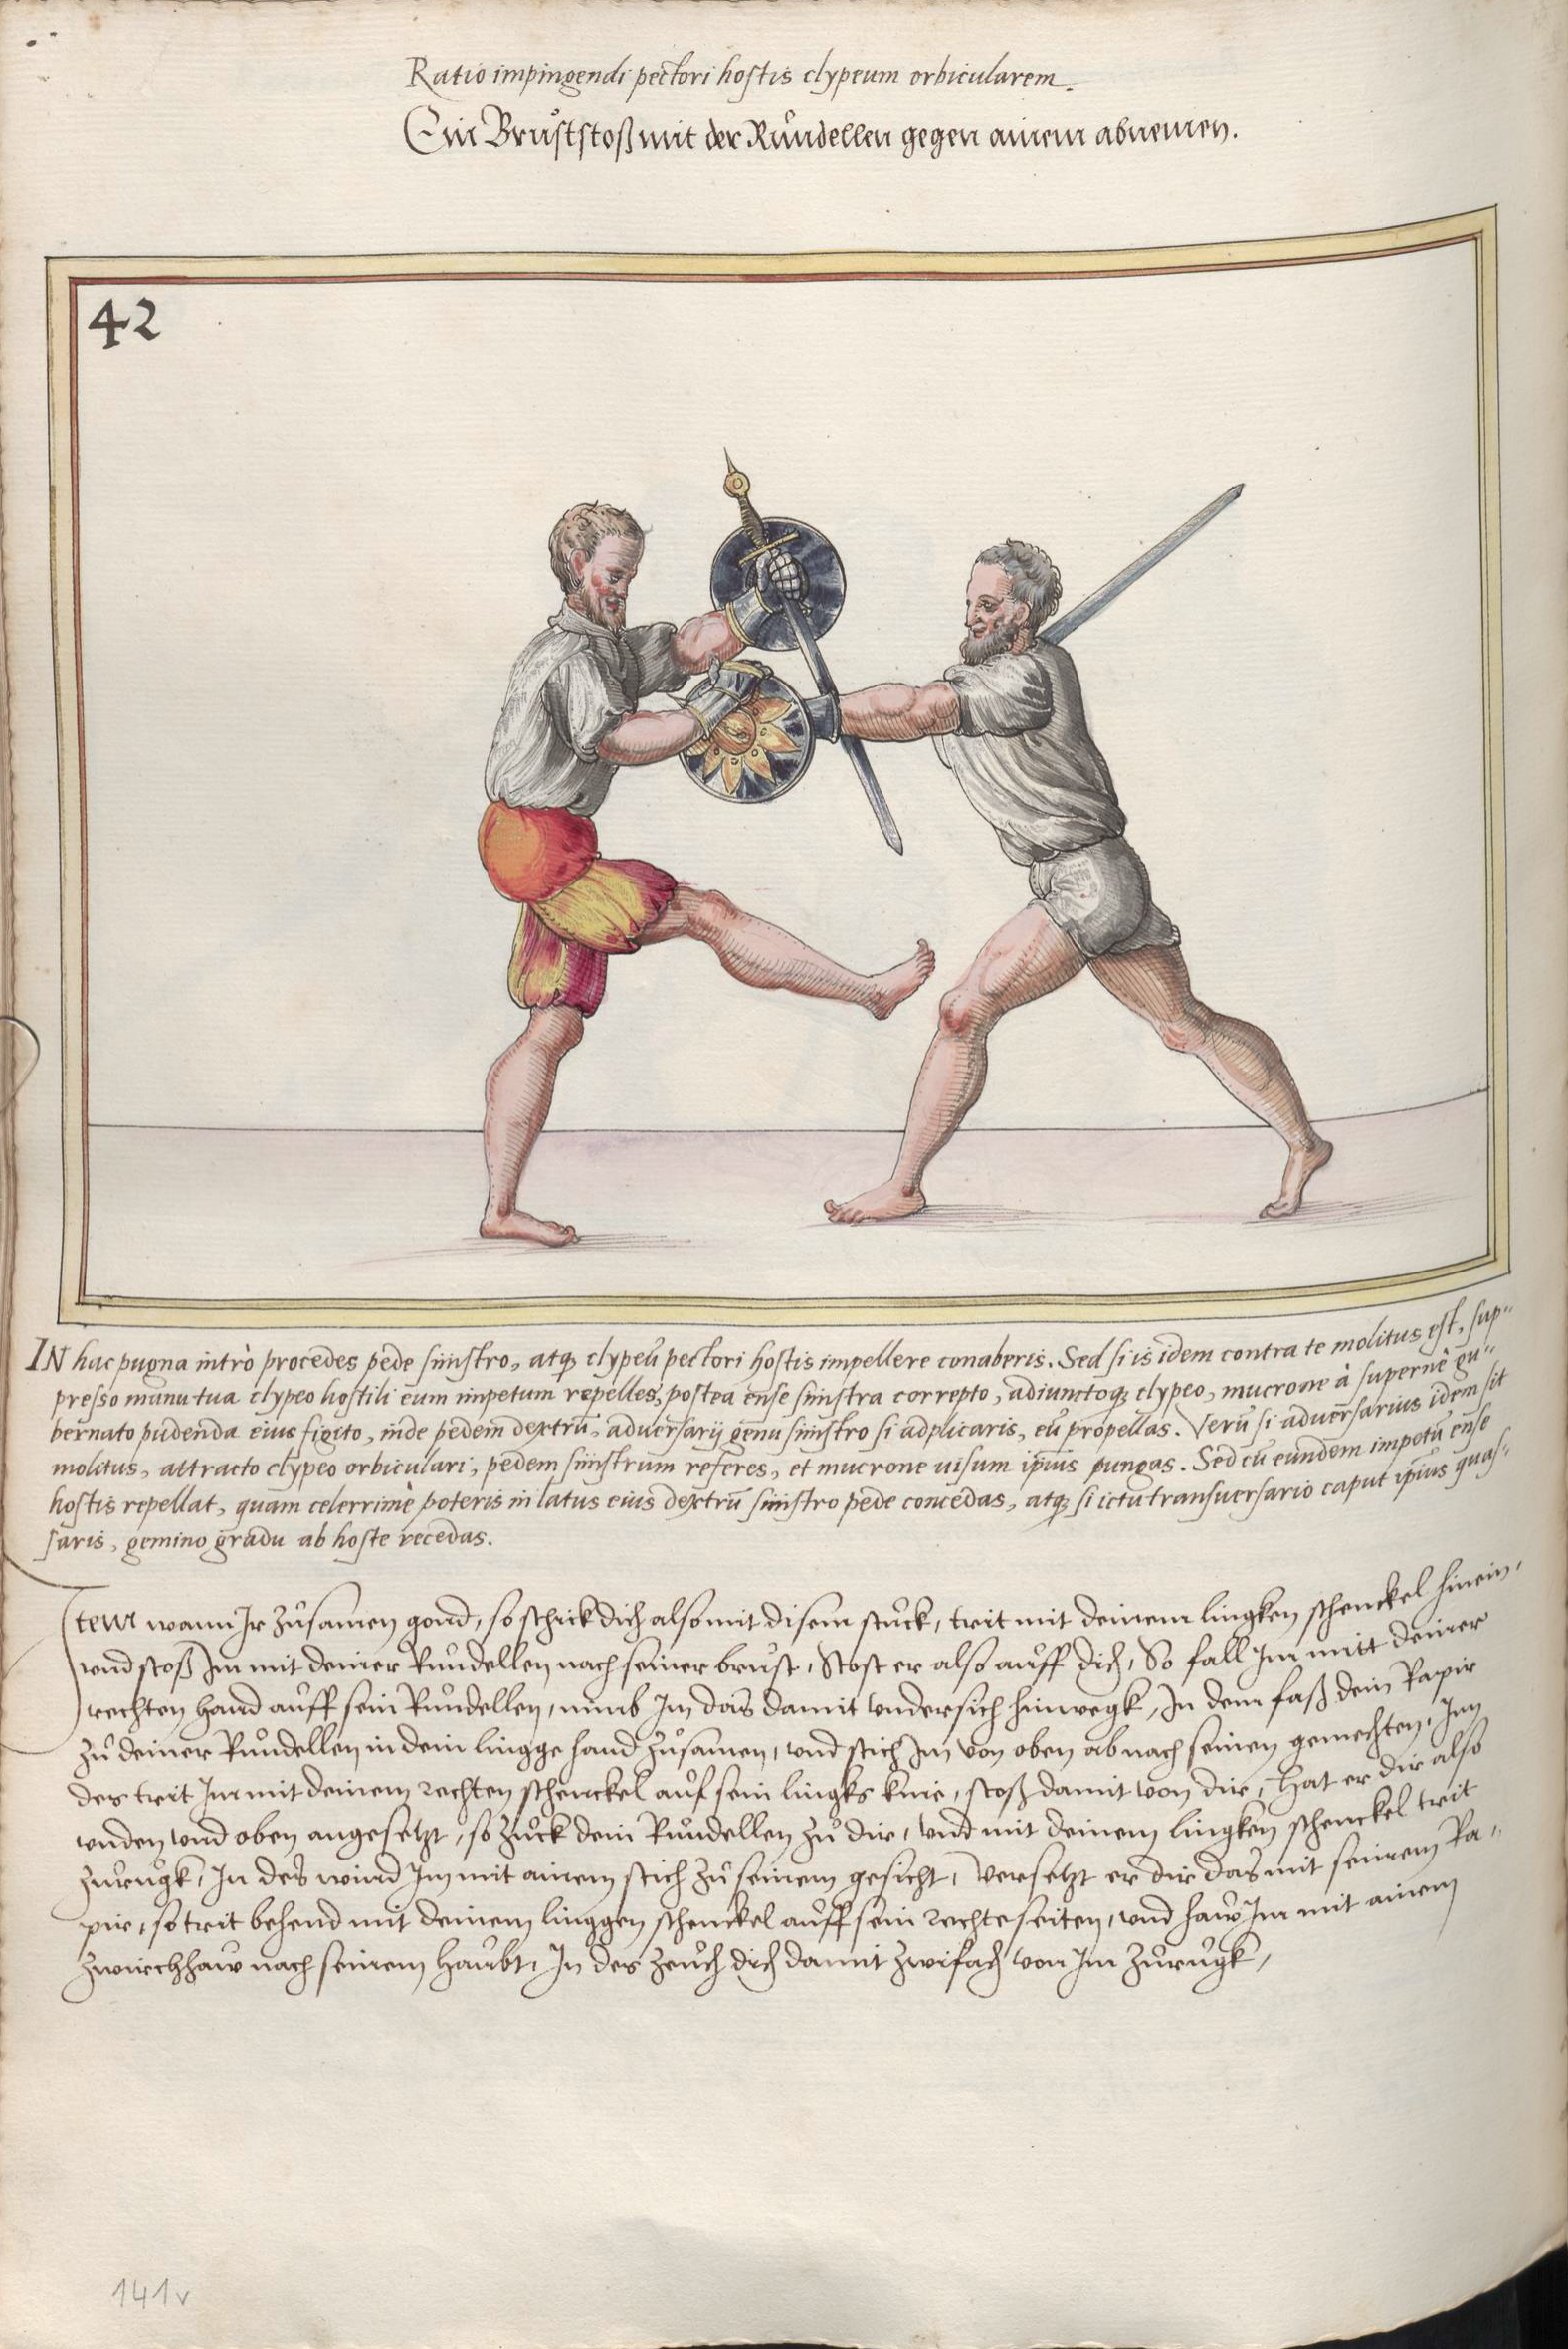 Ratio impingendi pectori hostis clypeum orbicularem.
Ein Brůststoß mit der Růndellen gegen ainem abnemen.
42
IN hac pugna intrò procedes pede sinistro, atq; clypeū pectori hostis impellere conaberis. Sed si is idem contra te molitus est, sup-
presso manu tua clypeo hostili eum impetum repelles, postea ense sinistra correpto, adiunctoq; clypeo, mucrone à supernè gu-
bernato pudenda eius figito, inde pedem dextrū, adversarij genu sinistro si adplicaris, eū propellas. Verū si adversarius idem sit
molitus, attracto clypeo orbiculari, pedem sinistrum referes, et mucrone uisum ipīus pungas. Sed cū eundem impetū ense
hostis repellat, quam celerrimè poteris in latus eius dextrū sinistro pede concedas, atq; si ictu transuersario caput ipīus quas-
saris, gemino gradu ab hoste recedas.
Item wann Ir zůsamen gond, so schick dich also mit disem stuck, trit mit deinem lingken schenckel hinein,
vnd stoß Im mit deiner Růndellen nach seiner brůst, Stost er also aůff dich, So fall Im mitt deiner
rechten hand aůff sein Růndellen, nimb Im das damit vndersich hinwegk, In dem faß dein Rapir
zů deiner Růndellen in dein lingge hand zůsamen, vnd stich Im von oben ab nach seinen gemechten, Inn
des trit Im mit deinem rechten schenckel aůf sein lingks knie, stoß damit von dir, Hat er dir also
vnden vnd oben angesetzt, so zůck dein Růndellen zů dir, vnd mit deinem lingken schenckel trit
zůrůgk, In des wind Im mit ainem stich zů seinem gesicht, Versetzt er dir das mit seinem Ra-
pir, so trit behend mit deinem linggen schenckel aůff sein rechte seiten, vnd haw Im mit ainem
zwirchhaw nach seinem haůbt, In des zeůch dich damit zwifach von Im zůrůgk,
141v